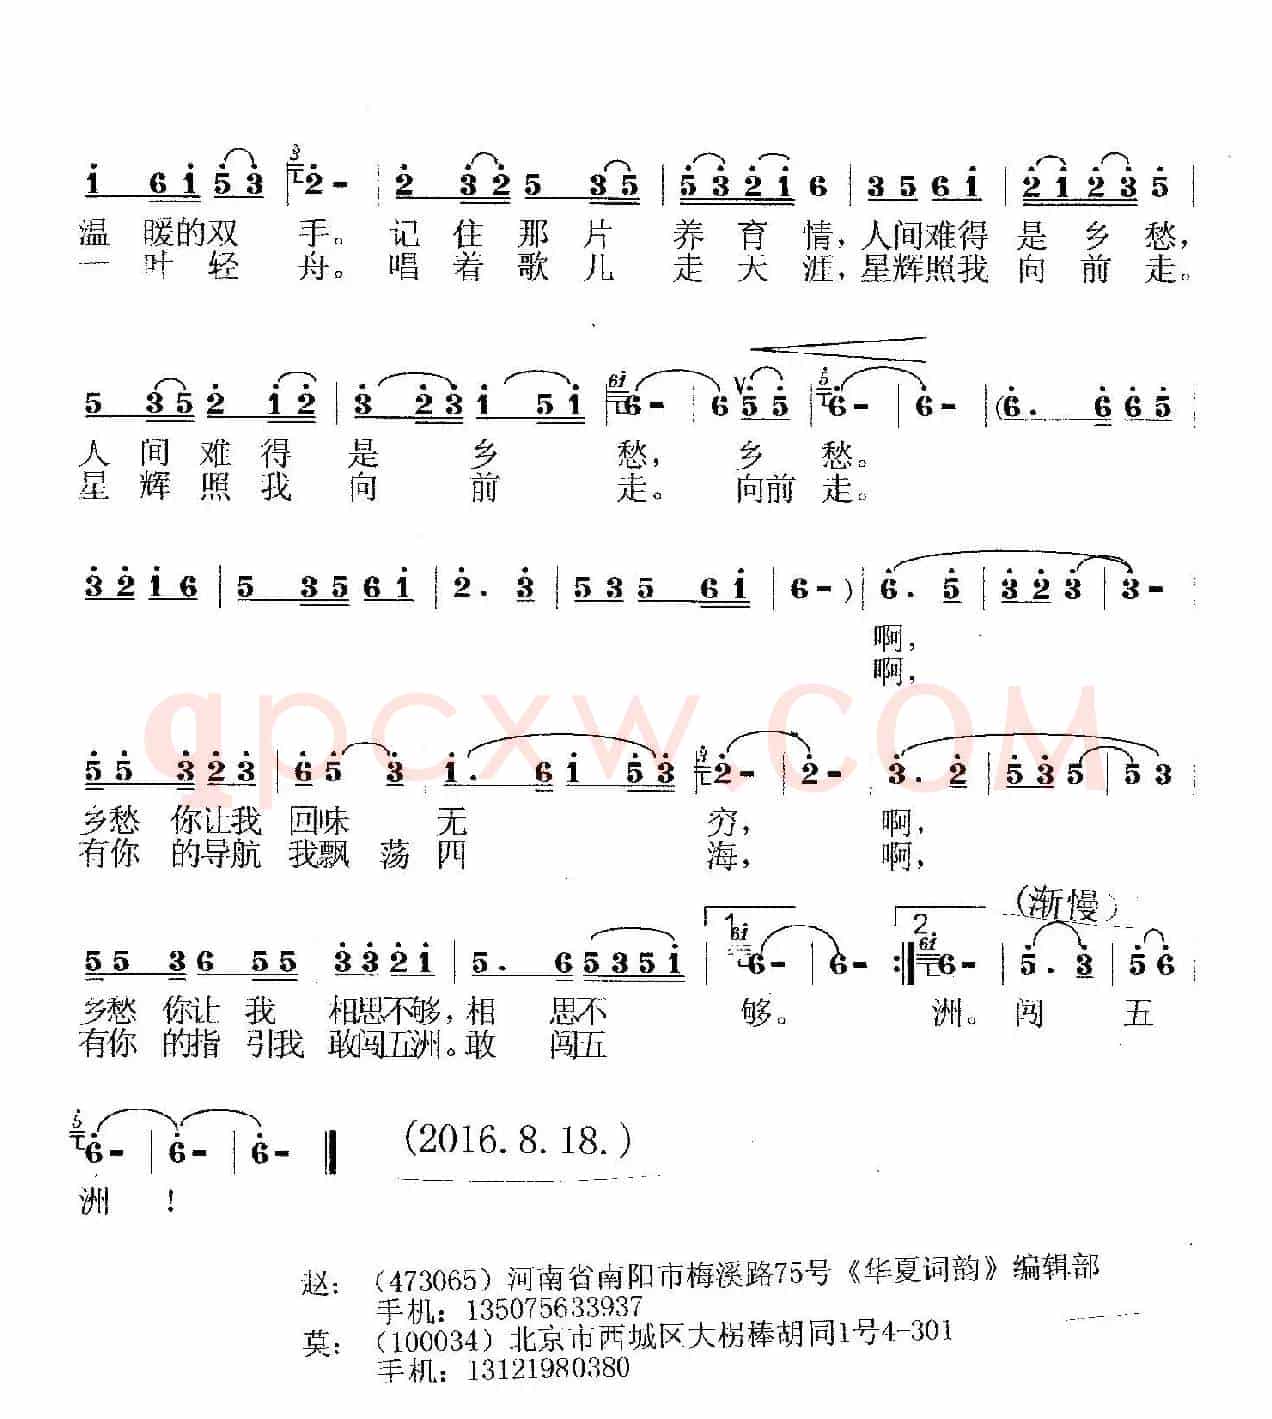 1 6 1 5 3 2 - 2 3 2 5 3 5 5 3 2 1 6 3 5 6 1 2 1 2 3 5
温 暖的双 手。记 住 那 片 养 育 情,人间难得 是 乡 愁,
一 叶 轻 舟。唱 着 歌 儿 走 天 涯,星辉照我 向 前 走。
5 3 5 2 1 2 3 2 3 1 5 1 61 6 - 6 5 5 5 6 - 6 - (6. 6 6 5
人 间 难 得 是 乡 愁, 乡 愁。
星 辉 照 我 向 前 走。 向前 走。
3 2 1 6 5 3 5 6 1 2. 3 5 3 5 6 1 6 - ) 6. 5 3 2 3 3 -
啊,
啊,
qpcxw.COM
5 5 3 2 3 6 5 3 1. 6 1 5 3 2 - 2 - 3. 2 5 3 5 5 3
乡愁 你让我 回味 无 穷, 啊,
有你 的导航 我飘 荡 四 海, 啊,
1. 2. (渐慢)
5 5 3 6 5 5 3 3 2 1 5. 6 5 3 5 1 61 6 - 6 - 61 6 - 5. 3 5 6
乡愁 你让 我 相思不够,相 思不 够。 洲。闯 五
有你 的指 引我 敢闯五洲。敢 闯五
5 6 - 6 - 6 - (2016.8.18.)
洲 !
赵: (473065) 河南省南阳市梅溪路75号《华夏词韵》编辑部
手机: 135075633937
莫: (100034) 北京市西城区大拐棒胡同1号4-301
手机: 13121980380